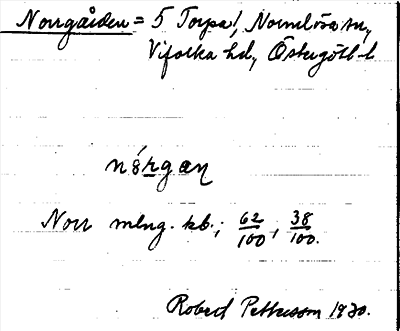 Norrgården = 5 Torpa, Normlösa sn,
Vifolka hd, Östergötl. l.
nǻrgan
Norr mlng. kb.; 62/100, 38/100.
Robert Pettersson 1930.